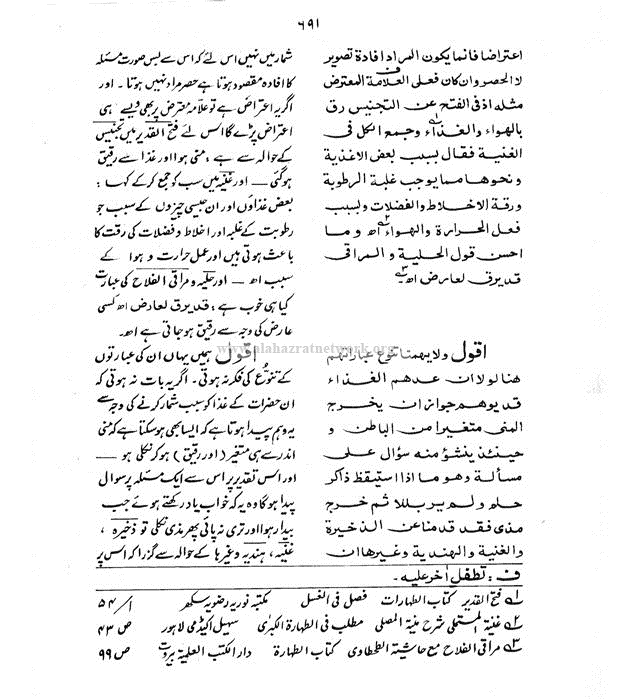 ٦٩١
اعتراضا فانما یکون المراد افادۃ تصویر
لا الحصر وان کان فعلی العلامۃ المعترض
مثلہ اذ فی الفتح عن التجنیس رق
بالھواء والغذاء وجمع الکل فی
الغنیۃ فقال بسبب بعض الاغذیۃ
ونحوھا مما یوجب غلبۃ الرطوبۃ
ورقۃ الاخلاط والفضلات وبسبب
فعل الحرارۃ والھواء اھ وما
احسن قول الحلیۃ و المراقی
قد یرق لعارض اھ
اقول ولا یھمنا تنوع عباراتھم
ھنا لولا ان عدھم الغذاء
قد یوھم جواز ان یخرج
المنی متغیرا من الباطن و
حینئذ ینشؤ منہ سؤال علی
مسألۃ وھو ما اذا استیقظ ذاکر
حلم ولم یر بللا ثم خرج
مذی فقد قدمنا عن الذخیرۃ
والغنیۃ والھندیۃ وغیرھا ان
شمار میں نہیں اس لئے کہ اس سے بس صورت مسئلہ
کا افادہ مقصود ہوتا ہے حصر مراد نہیں ہوتا ۔ اور
اگر یہ اعتراض ہے تو علامہ معترض پر بھی ویسے ہی
اعتراض پڑے گا اس لئے فتح القدیر میں تجنیس
کے حوالہ سے ہے ، منی ہوا اور غذا سے رقیق
ہوگئی ــ اور غنیہ میں سب کو جمع کر کے کہا :
بعض غذاؤں اور ان جیسی چیزوں کے سبب جو
رطوبت کے غلبہ اور اخلاط و فضلات کی رقت کا
باعث ہوتی ہیں اور عمل حرارت و ہوا کے
سبب اھ ــ اور حلیہ و مراقی الفلاح کی عبارت
کیا ہی خوب ہے ، قد یرق لعارض اھ کسی
عارض کی وجہ سے رقیق ہوجاتی ہے اھ۔
اقول ہمیں یہاں ان کی عبارتوں
کے تنوّع کی فکر نہ ہوتی ۔ اگر یہ بات نہ ہوتی کہ
ان حضرات کے غذا کو سبب شمار کرنے کی وجہ سے
یہ وہم پیدا ہوتا ہے کہ ایسا بھی ہوسکتا ہے کہ منی
اندر سے ہی متغیر ( اور رقیق ) ہو کر نکلی ہو ــ
اور اس تقدیر پر اس سے ایک مسئلہ پر سوال
پیدا ہوگا وہ یہ کہ خواب یاد رکھتے ہوئے جب
بیدار ہوا اور تری نہ پائی پھر مذی نکلی تو ذخیرہ ،
غنیہ ، ہندیہ وغیرہا کے حوالہ سے گزرا کہ اس پر
www.alahazratnetwork.org
ف : تطفل اٰخر علیہ ۔
١ـ فتح القدیر کتاب الطہارات فصل فی الغسل مکتبہ نوریہ رضویہ سکھر ١/ ٥٤
٢ـ غنیۃ المستملی شرح منیۃ المصلی مطلب فی الطہارۃ الکبرٰی سہیل اکیڈمی لاہور ص ٤٣
٣ـ مراقی الفلاح مع حاشیۃ الطحطاوی کتاب الطہارۃ دار الکتب العلمیۃ بیروت ص ٩٩